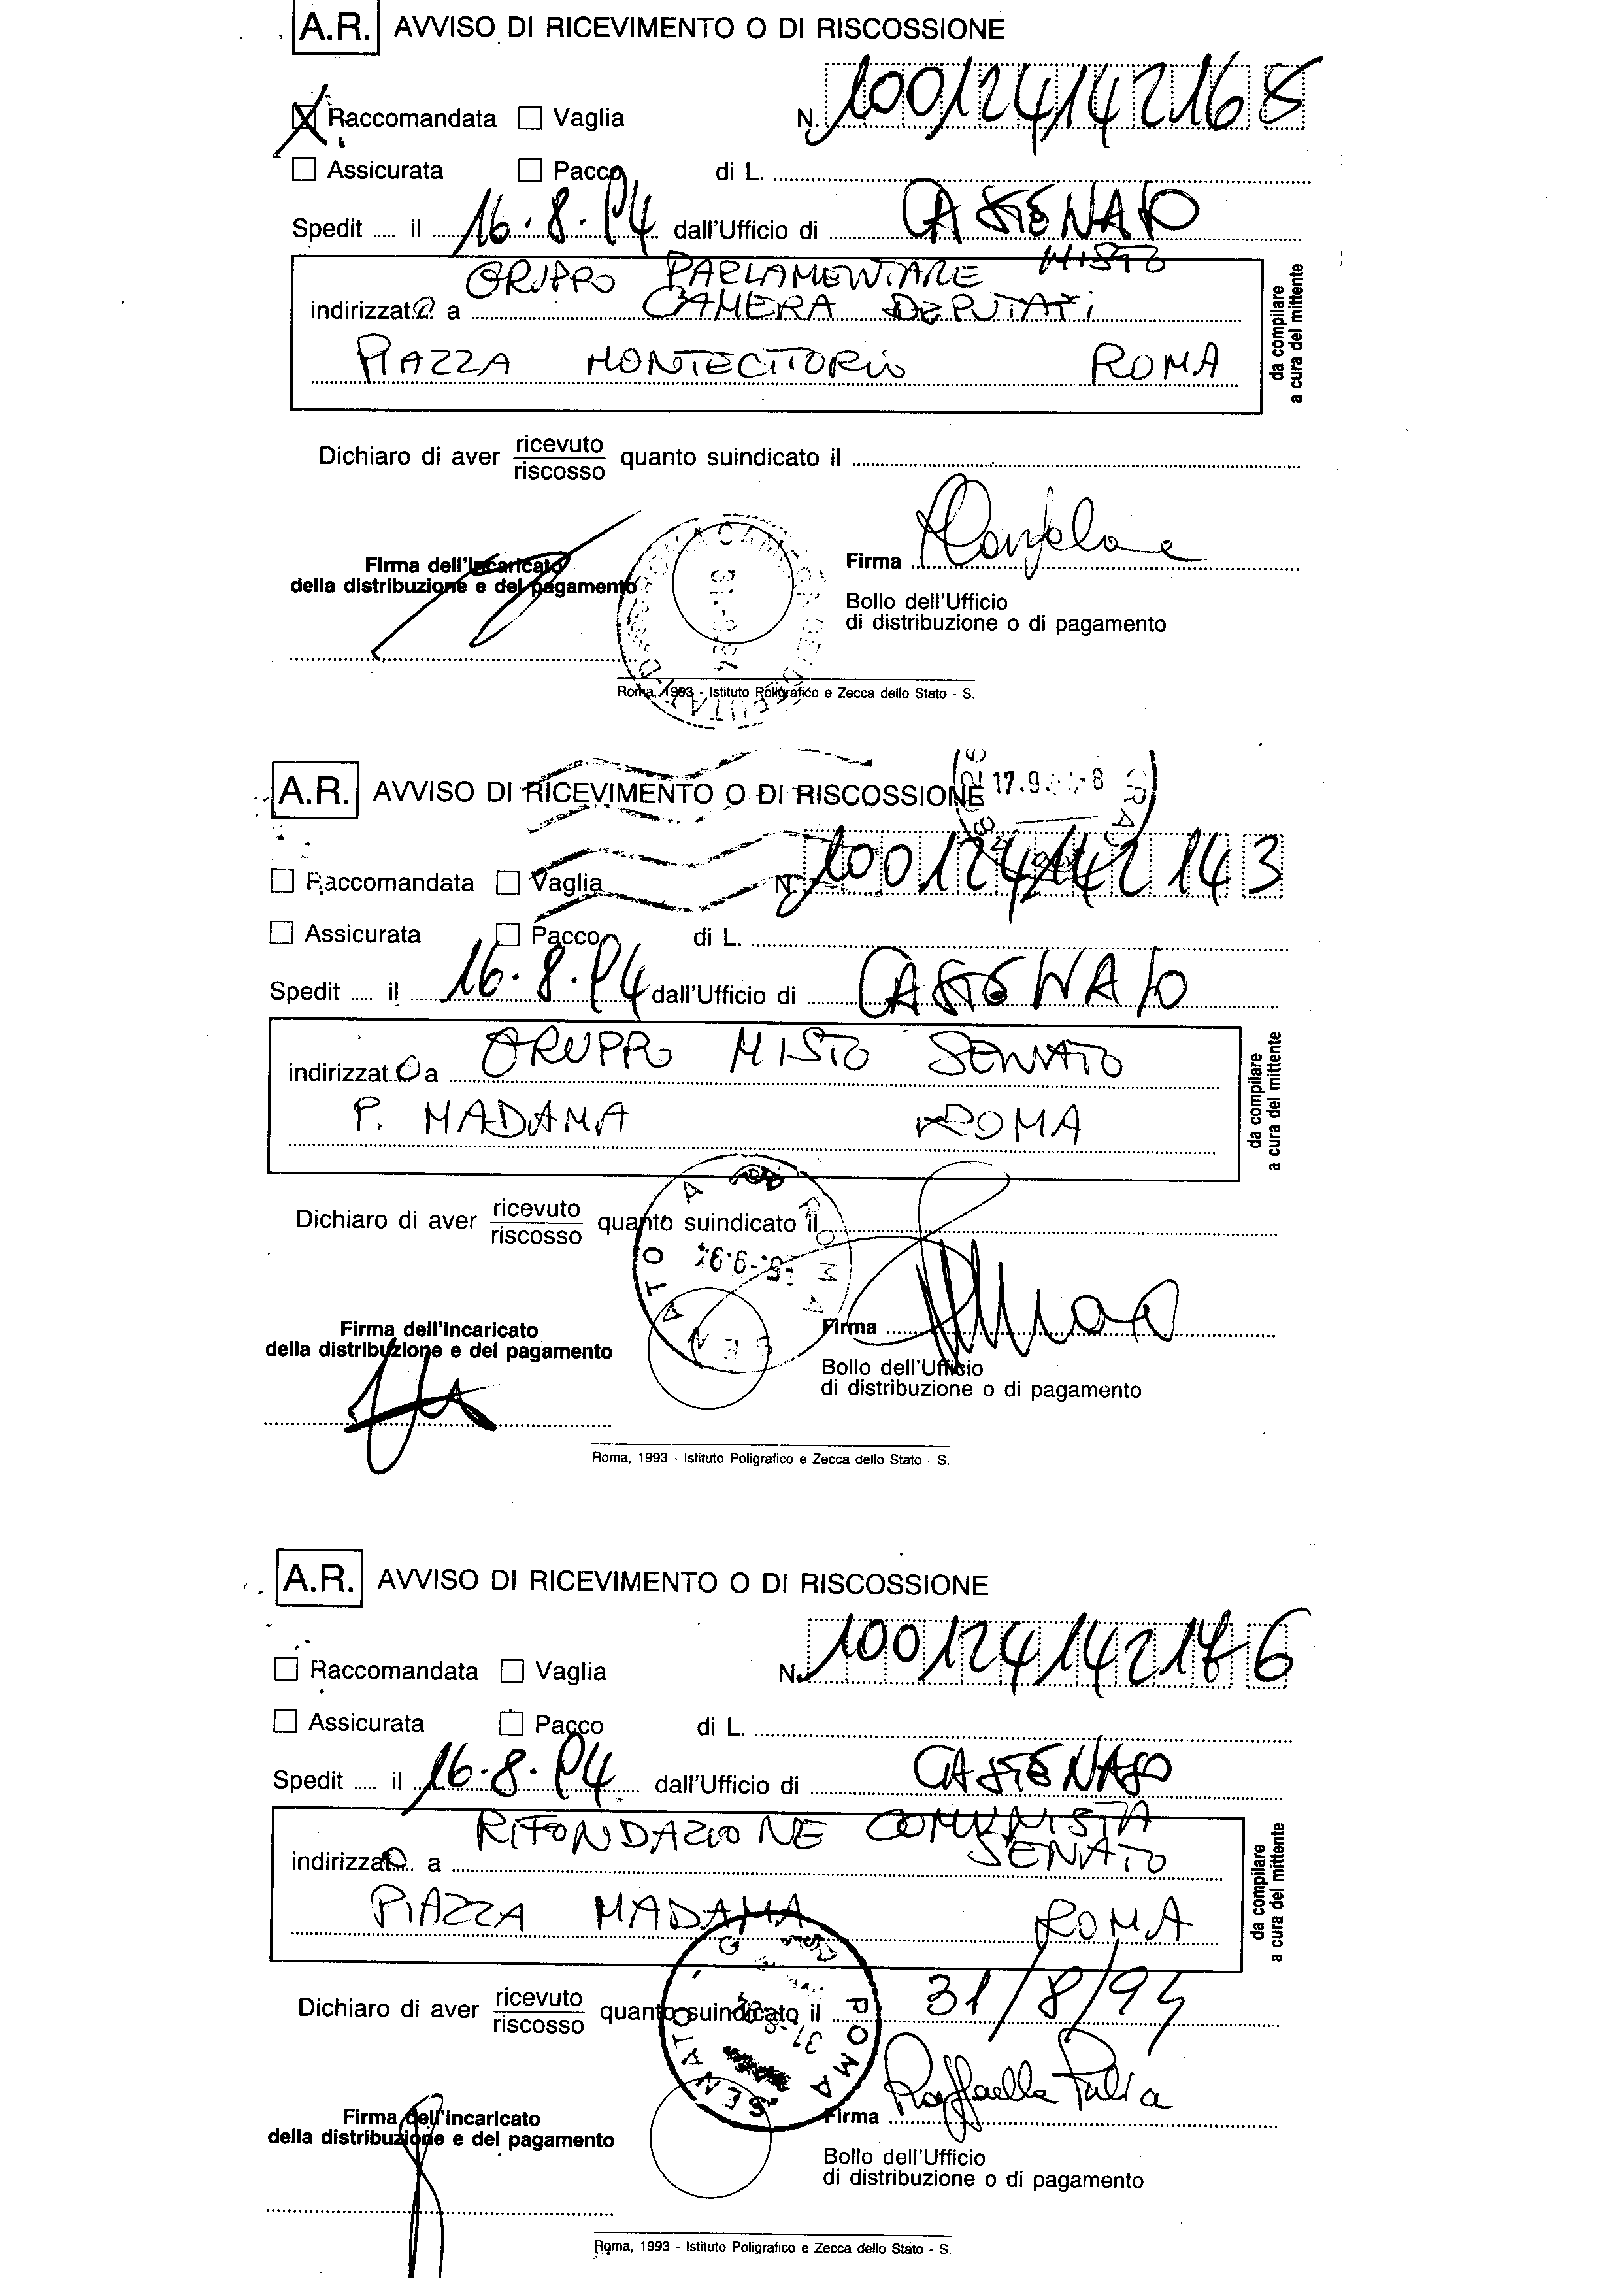 A.R. AVVISO DI RICEVIMENTO O DI RISCOSSIONE
Raccomandata Vaglia N. 100124142168
Assicurata Pacco di L.
Spedit ..... il 16.8.94 dall'Ufficio di CASTENASO
GRUPPO PARLAMENTARE MISTO
indirizzato a CAMERA DEPUTATI
PIAZZA MONTECITORIO ROMA
da compilare
a cura del mittente
Dichiaro di aver ricevuto/riscosso quanto suindicato il
Firma dell'incaricato
della distribuzione e del pagamento
Firma
Bollo dell'Ufficio
di distribuzione o di pagamento
Roma, 1993 - Istituto Poligrafico e Zecca dello Stato - S.
17.9. -8
A.R. AVVISO DI RICEVIMENTO O DI RISCOSSIONE
Raccomandata Vaglia N. 100124142143
Assicurata Pacco di L.
Spedit ..... il 16.8.94 dall'Ufficio di CASTENASO
indirizzato a GRUPPO MISTO SENATO
P. MADAMA ROMA
da compilare
a cura del mittente
Dichiaro di aver ricevuto/riscosso quanto suindicato il
SENATO ROMA
Firma dell'incaricato
della distribuzione e del pagamento
Firma
Bollo dell'Ufficio
di distribuzione o di pagamento
Roma, 1993 - Istituto Poligrafico e Zecca dello Stato - S.
A.R. AVVISO DI RICEVIMENTO O DI RISCOSSIONE
Raccomandata Vaglia N. 100124142176
Assicurata Pacco di L.
Spedit ..... il 16.8.94 dall'Ufficio di CASTENASO
RIFONDAZIONE COMUNISTA
indirizzato a SENATO
PIAZZA MADAMA ROMA
da compilare
a cura del mittente
Dichiaro di aver ricevuto/riscosso quanto suindicato il 31/8/94
SENATO ROMA
Firma dell'incaricato
della distribuzione e del pagamento
Firma Raffaella Pulia
Bollo dell'Ufficio
di distribuzione o di pagamento
Roma, 1993 - Istituto Poligrafico e Zecca dello Stato - S.